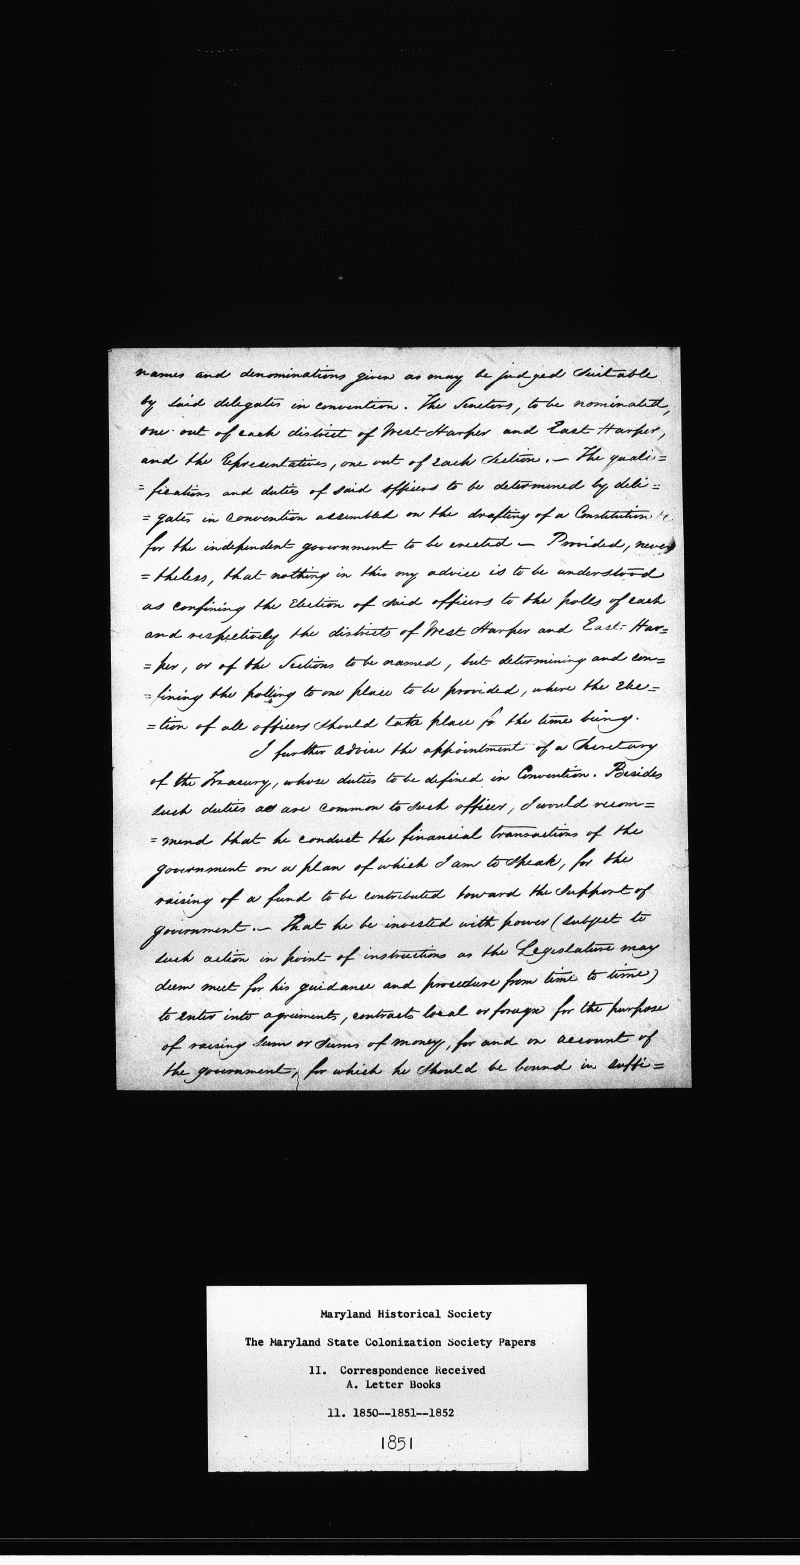 names and denominations given as may be judged suitable
by said delegates in convention. The Senators, to be nominated,
one out of each district of West Harper and East Harper,
and the Representatives, one out of each Section. — The quali=
=fications and duties of said officers to be determined by dele=
=gates in convention assembled on the drafting of a Constitution
for the independent government to be erected — Provided, never
=theless, that nothing in this my advice is to be understood
as confining the Election of said officers to the polls of each
and respectively the districts of West Harper and East Har=
=per, or of the Sections to be named, but determining and con=
=fining the polling to one place to be provided, where the Elec=
=tion of all officers should take place for the time being.
I further advise the appointment of a Secretary
of the Treasury, whose duties to be defined in Convention. Besides
such duties as are common to such officer, I would recom=
=mend that he conduct the financial transactions of the
government on a plan of which I am to speak, for the
raising of a fund to be contributed toward the support of
government. — That he be invested with power (subject to
such action in point of instructions as the Legislature may
deem meet for his guidance and procedure from time to time)
to enter into agreements, contracts local or foreign for the purpose
of raising sum or sums of money, for and on account of
the government, for which he should be bound in suffi=
Maryland Historical Society
The Maryland State Colonization Society Papers
II. Correspondence Received
A. Letter Books
11. 1850--1851--1852
1851